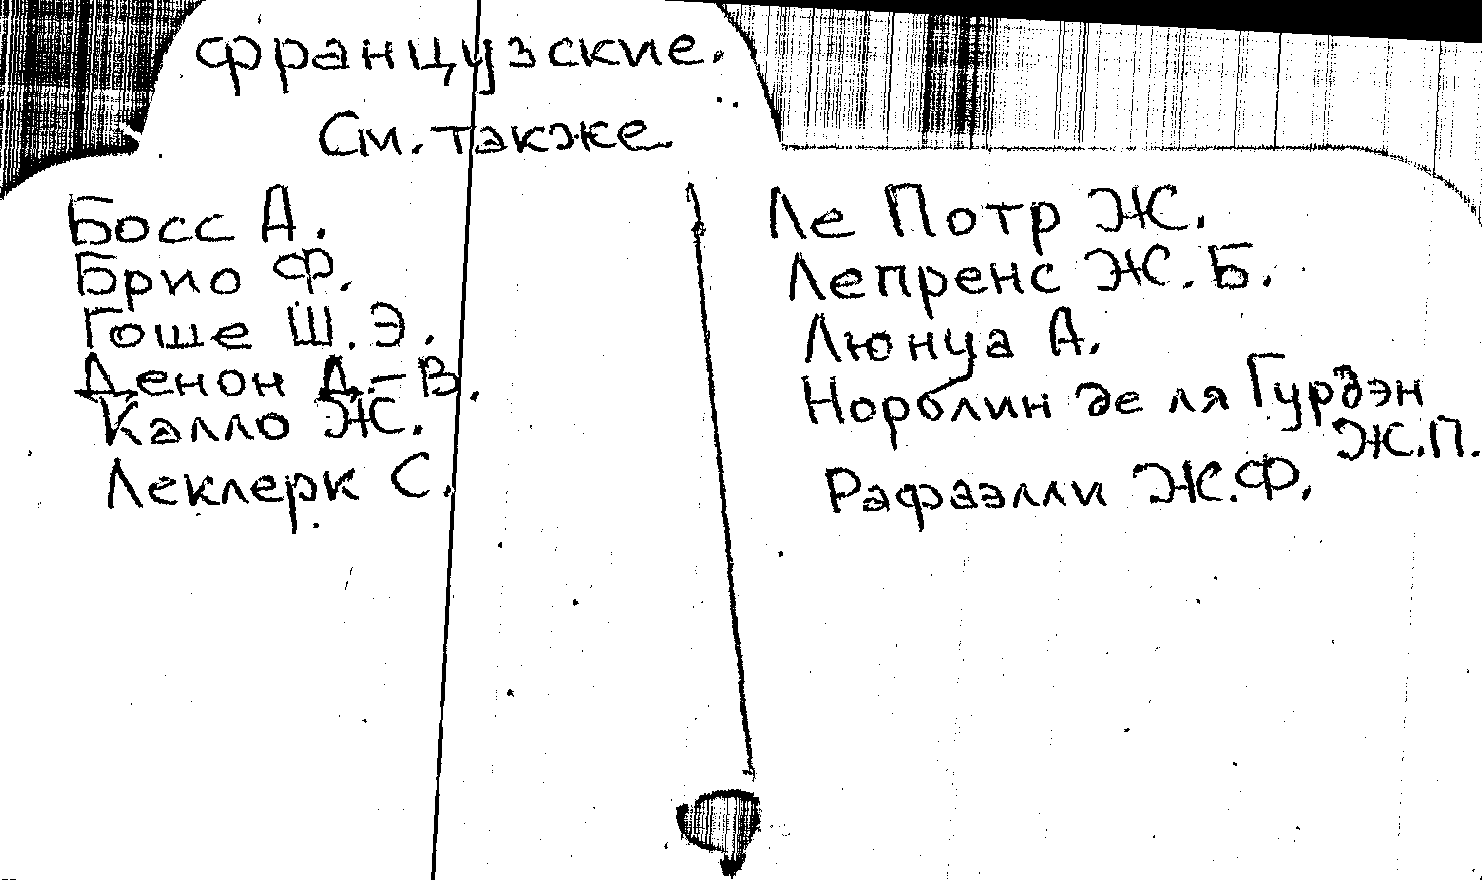 французские.
См. также
Босс А.
Брио Ф.
Гоше Ш.Э.
Денон Д.-В.
Калло Ж.
Леклерк С.
Ле Потр Ж.
Лепренс Ж.Б.
Люнуа А.
Норблин де ля Гурдэн
Ж.П.
Рафаэлли Ж.Ф.